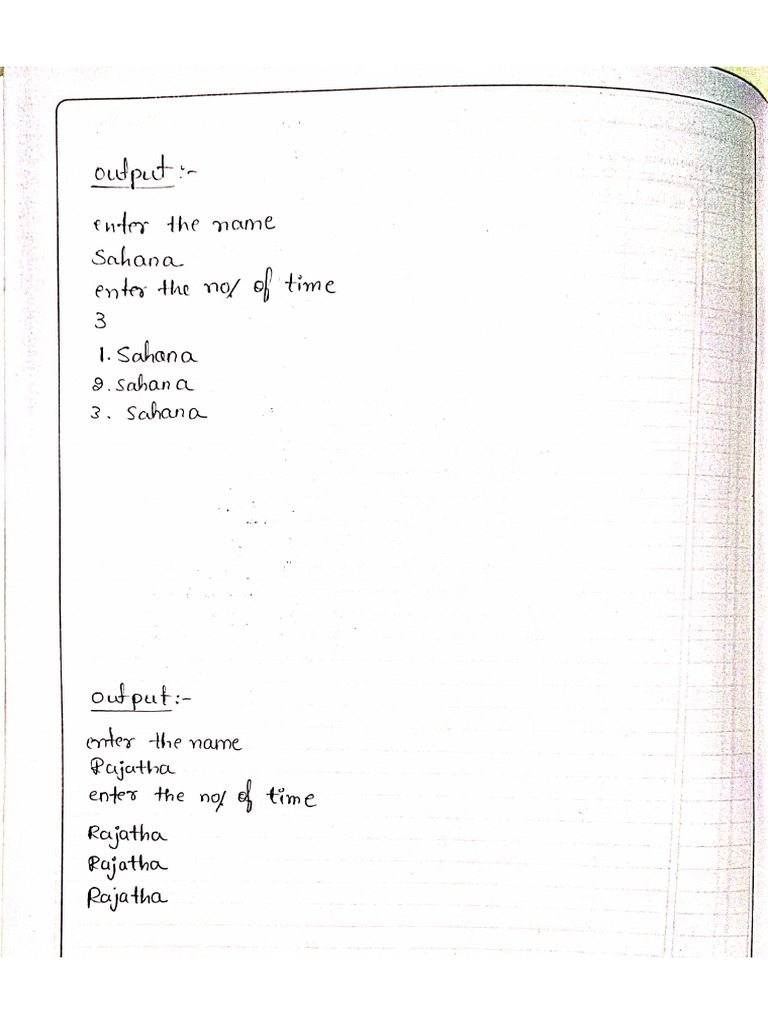 output :-
enter the name
Sahana
enter the no/ of time
3
1. Sahana
2. Sahana
3. Sahana
output :-
enter the name
Rajatha
enter the no/ of time
Rajatha
Rajatha
Rajatha